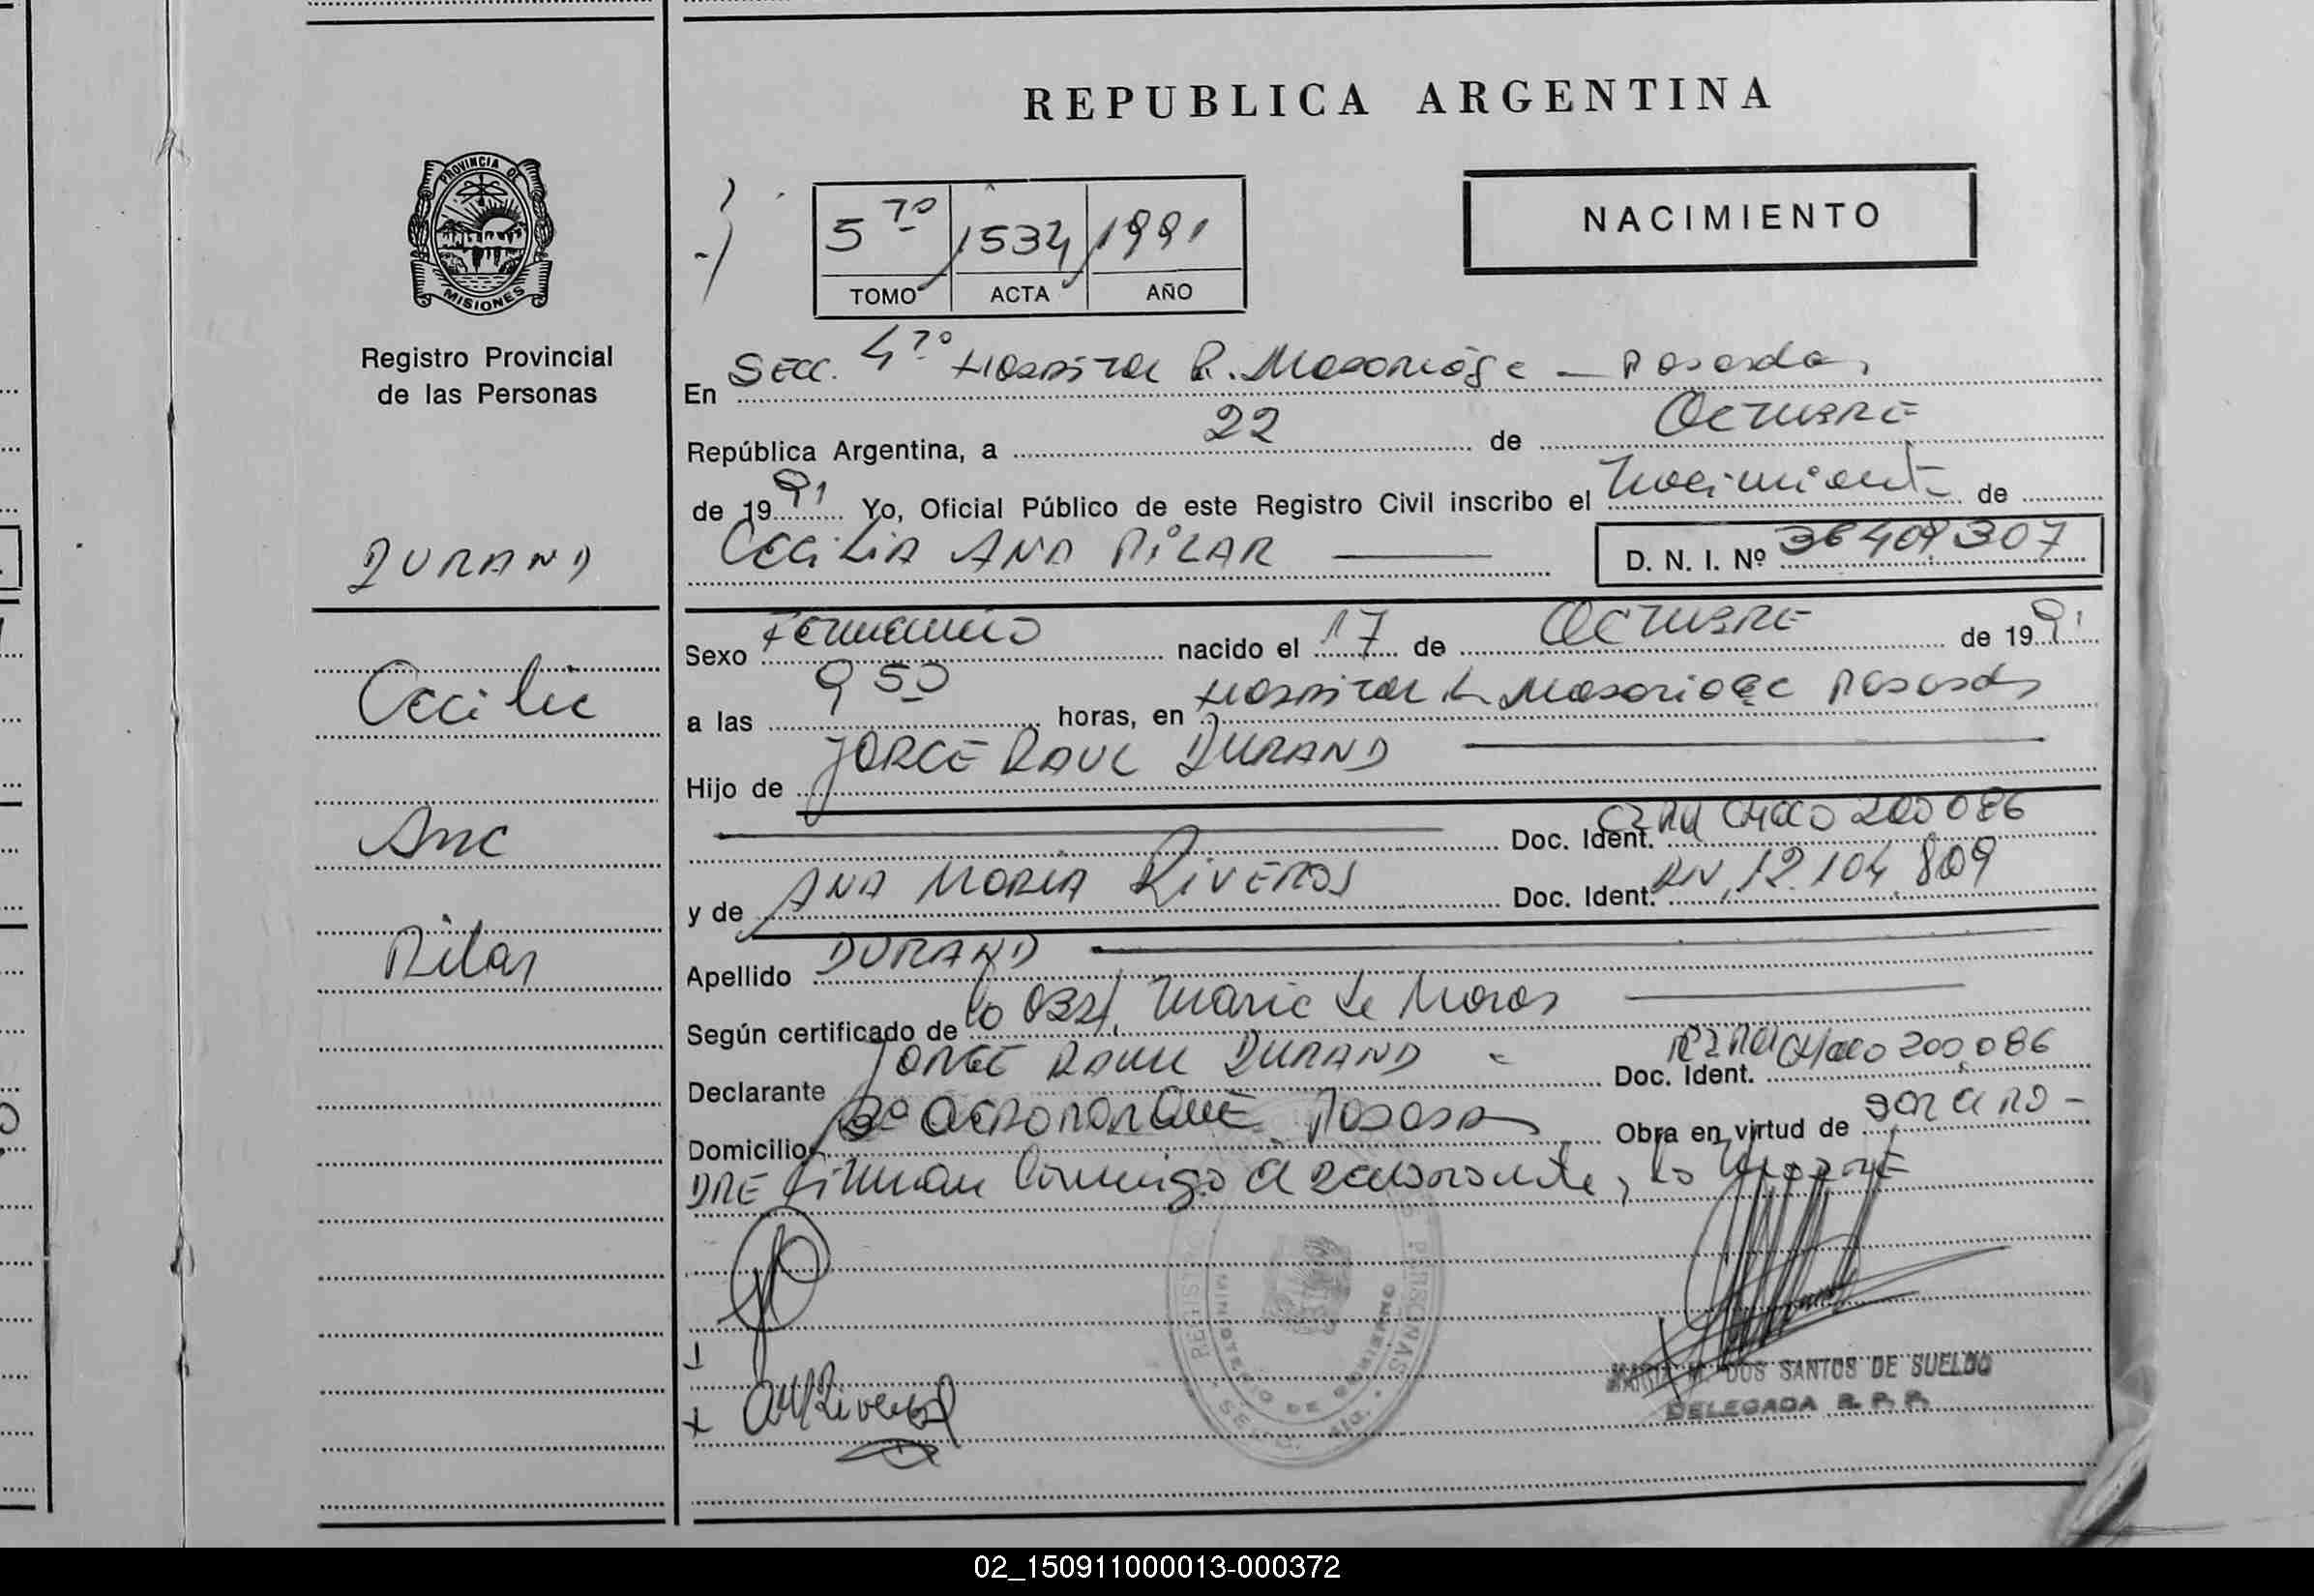 REPUBLICA ARGENTINA
PROVINCIA DE
MISIONES
Registro Provincial
de las Personas
NACIMIENTO
5 to 1534 1991
TOMO ACTA AÑO
En Secc. 4to Hospital R. Madariaga — Posadas
República Argentina, a 22 de Octubre
de 1991 Yo, Oficial Público de este Registro Civil inscribo el Nacimiento de
CECILIA ANA PILAR D. N. I. Nº 36409307
DURAND
Cecilia
Ana
Pilar
Sexo Femenino nacido el 17 de OCTUBRE de 1991
a las 9 50 horas, en Hospital R. Madariaga Posadas
Hijo de JORGE RAUL DURAND
Doc. Ident. CHACO 200086
y de ANA MARIA RIVEROS Doc. Ident. 12.104.809
Apellido DURAND
Según certificado de la Obst. Maria de
Declarante JORGE RAUL DURAND Doc. Ident. Chaco 200,086
Domicilio Posadas Obra en virtud de ser el PA-
DRE Firman Conmigo el declarante, la MADRE
REGISTRO PERSONAS
MINISTERIO DE GOBIERNO
SECC. 4ta.
AMRiveros
MARIA M. DOS SANTOS DE SUELDO
DELEGADA R. P. P.
02_150911000013-000372